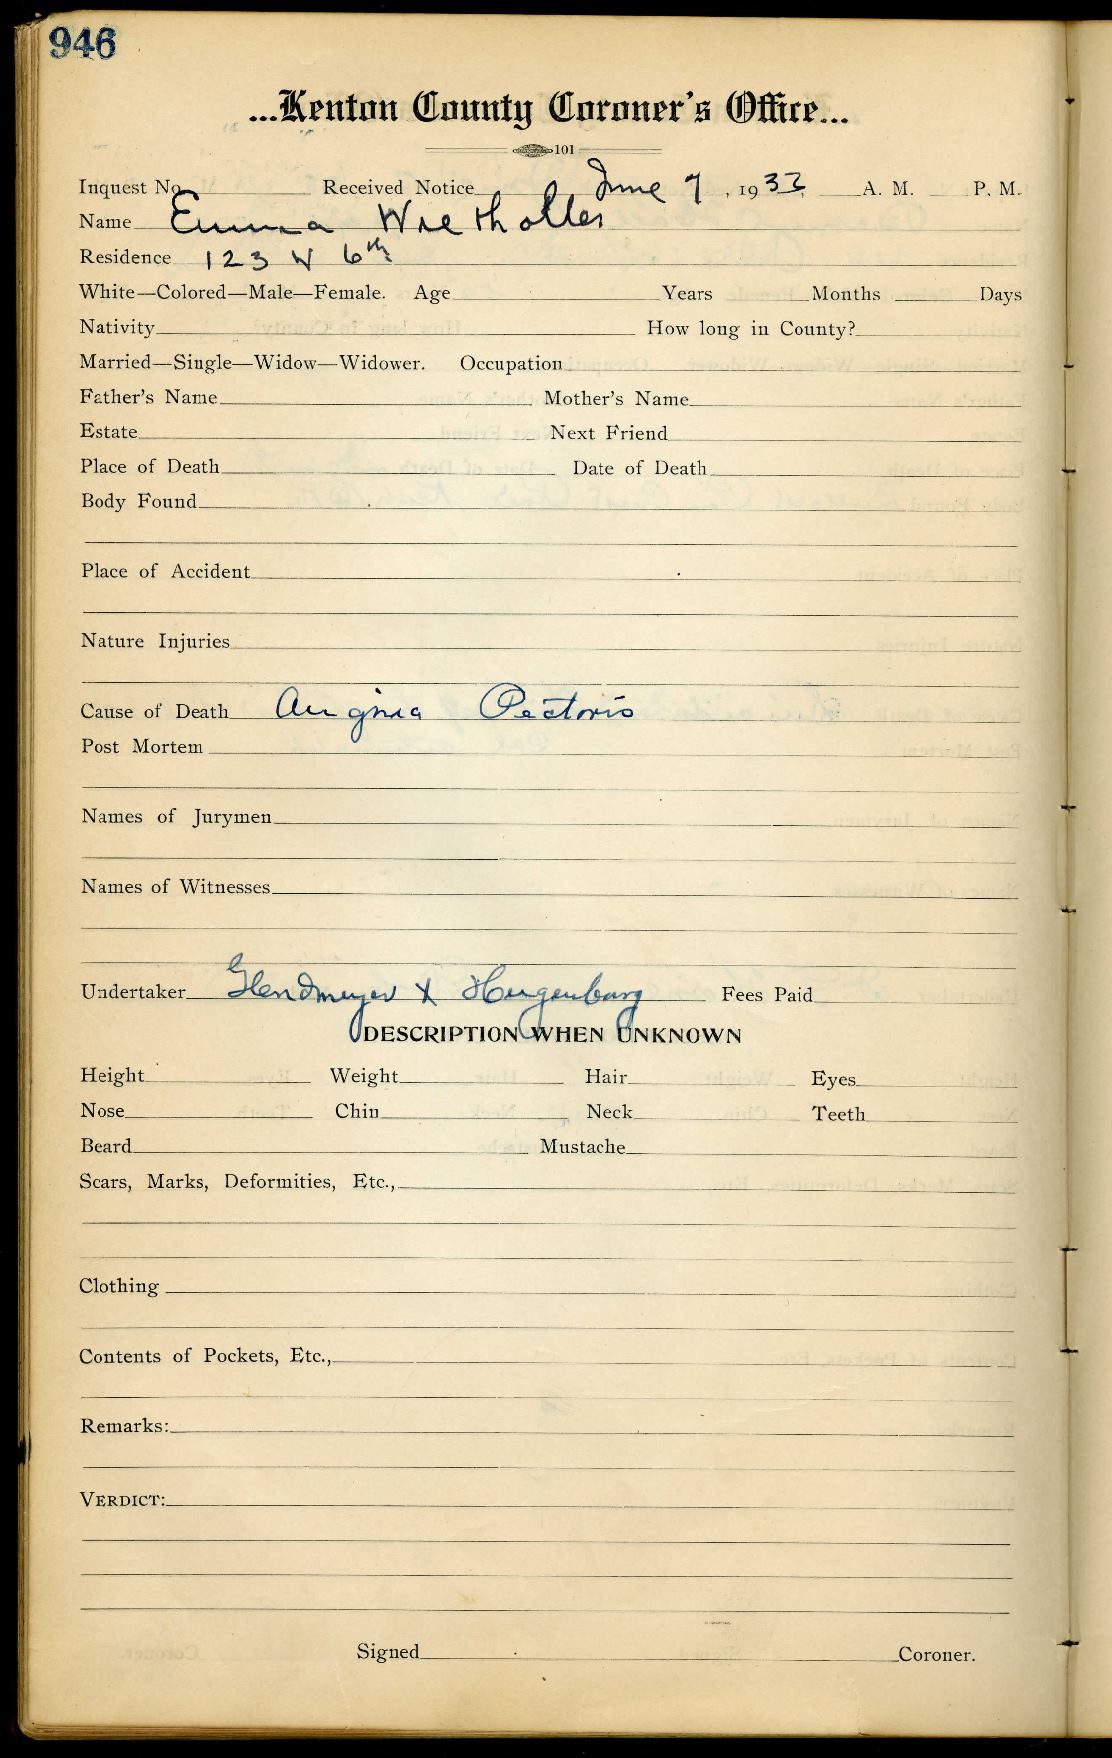 946
...Kenton County Coroner's Office...
101
Inquest No. Received Notice June 7, 1933 A. M. P. M.
Name Emma Wietholter
Residence 123 W 6th
White—Colored—Male—Female. Age Years Months Days
Nativity How long in County?
Married—Single—Widow—Widower. Occupation
Father's Name Mother's Name
Estate Next Friend
Place of Death Date of Death
Body Found
Place of Accident
Nature Injuries
Cause of Death Angina Pectoris
Post Mortem
Names of Jurymen
Names of Witnesses
Undertaker & Fees Paid
DESCRIPTION WHEN UNKNOWN
Height Weight Hair Eyes
Nose Chin Neck Teeth
Beard Mustache
Scars, Marks, Deformities, Etc.,
Clothing
Contents of Pockets, Etc.,
Remarks:
VERDICT:
Signed Coroner.